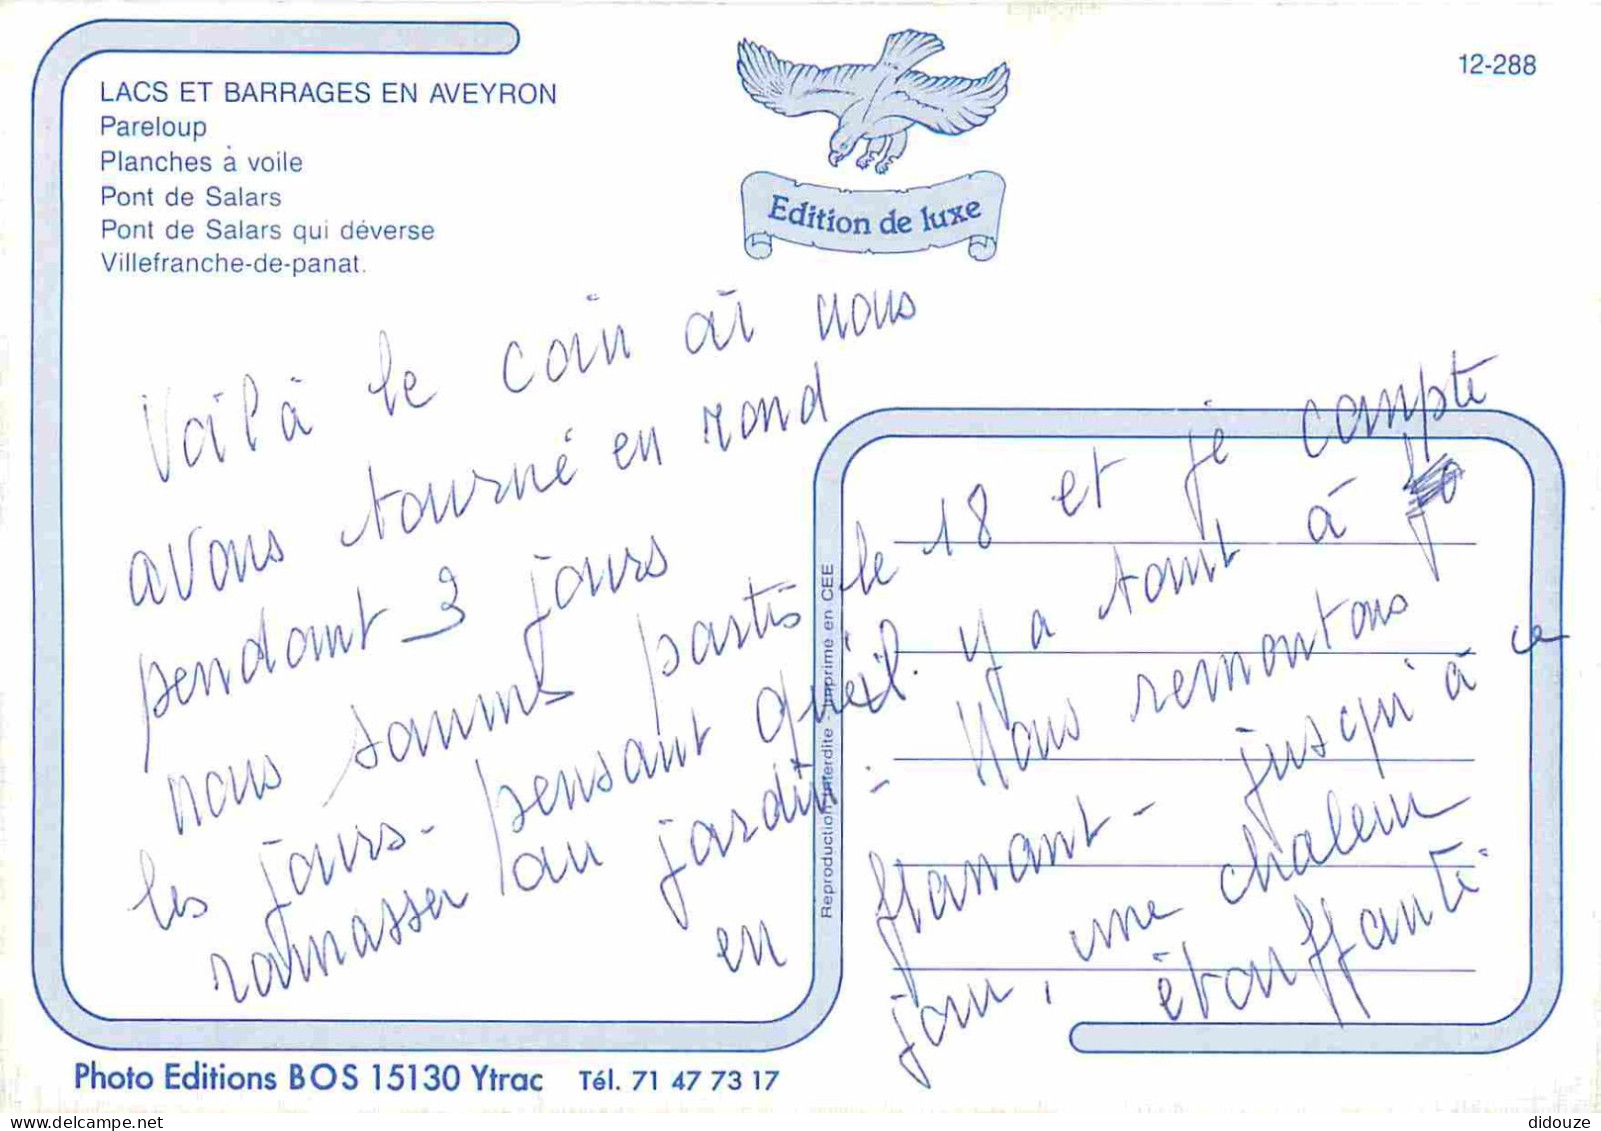 12-288
LACS ET BARRAGES EN AVEYRON
Pareloup
Planches à voile
Pont de Salars
Pont de Salars qui déverse
Villefranche-de-panat.
Edition de luxe
Voilà le coin où nous
avons tourné en rond
pendant 3 jours
nous sommes partis le 18 et je compte
les jours - pensant qu'il y a tant à
ramasser au jardin - Nous remontons
en flanant - jusqu'à ce
jour, une chaleur
étouffante.
Reproduction interdite - Imprimé en CEE
Photo Editions BOS 15130 Ytrac Tél. 71 47 73 17
delcampe.net
didouze